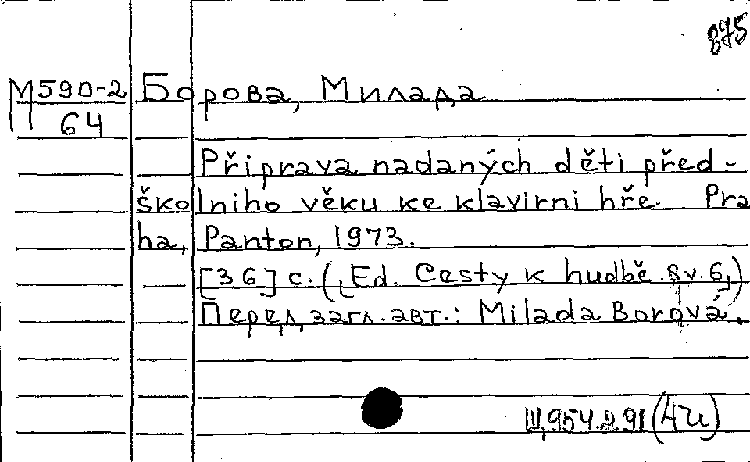 875
М590-2 Борова, Милада
64
Připrava nadaných děti před-
školniho věku ke klavirni hře Pra
ha, Panton, 1973.
[36] с. (Ed. Cesty k hudbě. Sv. 6)
Перед загл. авт.: Milada Borová.
Щ954.2.91(4Ч)